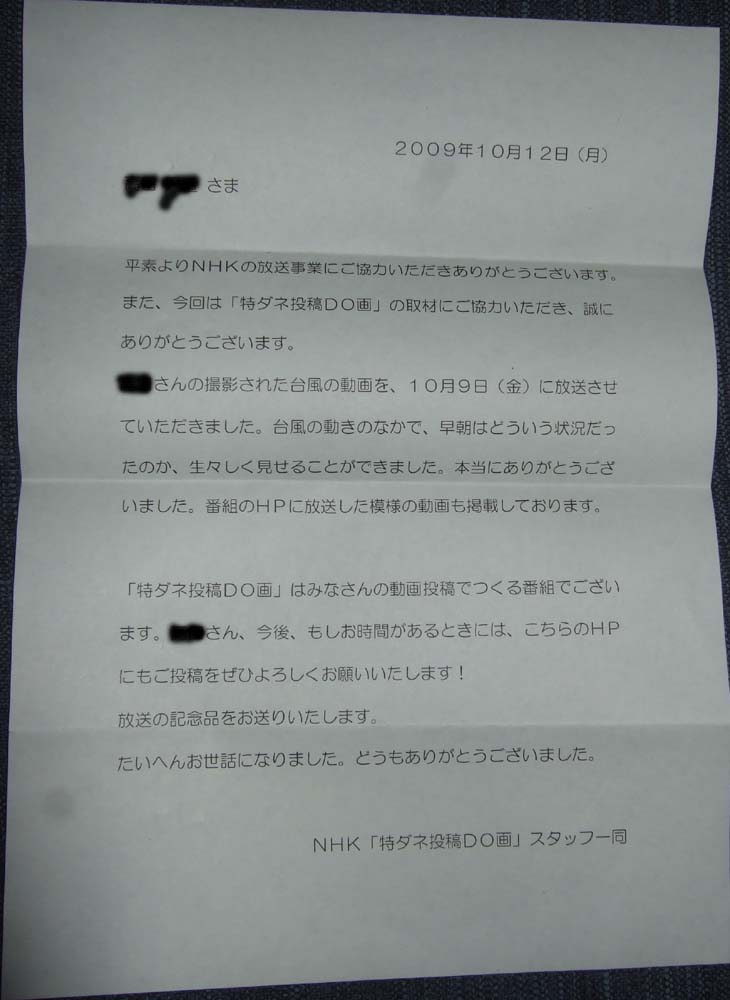 2009年10月12日（月）
さま
平素よりNHKの放送事業にご協力いただきありがとうございます。
また、今回は「特ダネ投稿DO画」の取材にご協力いただき、誠に
ありがとうございます。
さんの撮影された台風の動画を、10月9日（金）に放送させ
ていただきました。台風の動きのなかで、早朝はどういう状況だっ
たのか、生々しく見せることができました。本当にありがとうござ
いました。番組のHPに放送した模様の動画も掲載しております。
「特ダネ投稿DO画」はみなさんの動画投稿でつくる番組でござい
ます。さん、今後、もしお時間があるときには、こちらのHP
にもご投稿をぜひよろしくお願いいたします！
放送の記念品をお送りいたします。
たいへんお世話になりました。どうもありがとうございました。
NHK「特ダネ投稿DO画」スタッフ一同